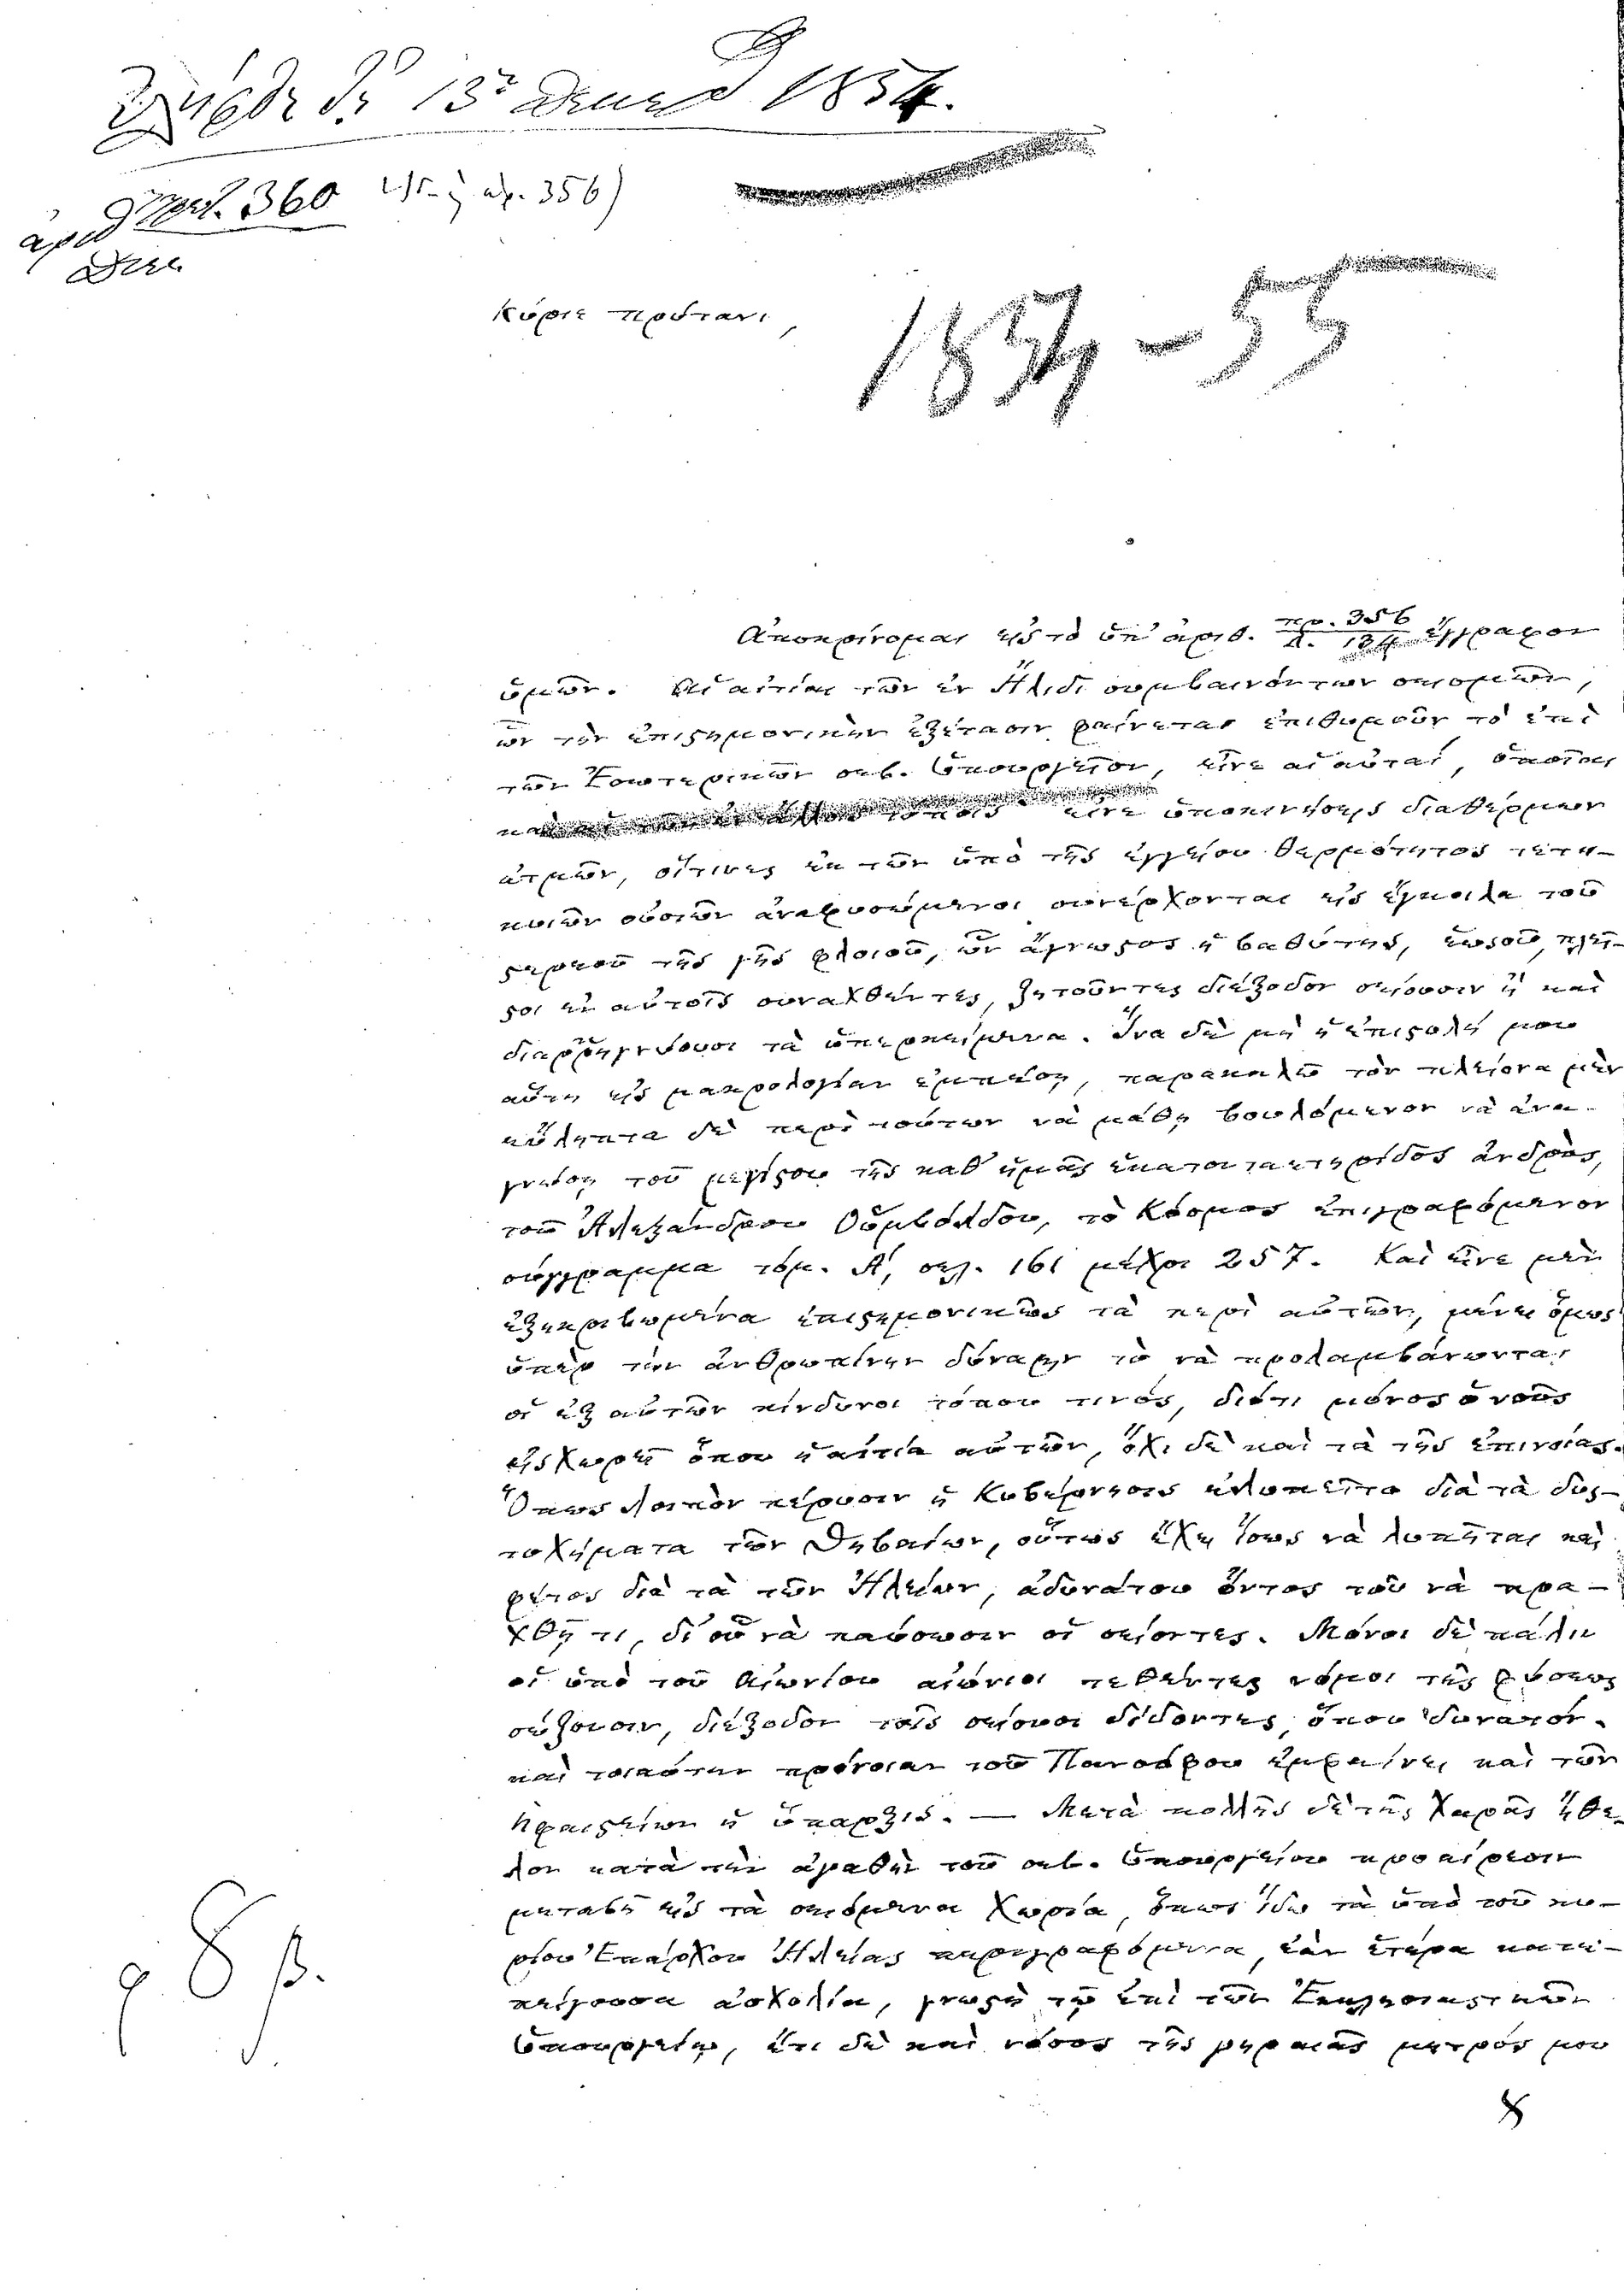 13 1854.
ἀριθ Πρωτ. 360 ἀρ. 356)
Κύριε πρύτανι,
1854-55
Ἀποκρίνομαι εἰς τὸ ὑπ' ἀριθ. πρ. 356 / Δ. 134 ἔγγραφον
ὑμῶν. Αἱ αἰτίαι τῶν ἐν Ἤλιδι συμβαινόντων σεισμῶν,
ὧν τὴν ἐπιστημονικὴν ἐξέτασιν φαίνεται ἐπιθυμοῦν τὸ ἐπὶ
τῶν Ἐσωτερικῶν σεβ. Ὑπουργεῖον, εἶνε αἱ αὐταί, ὁποῖαι
καὶ αἱ τῶν ἐν ἄλλοις τόποις εἶνε ὑποκινήσεις διαθέρμων
ἀτμῶν, οἵτινες ἐκ τῶν ὑπὸ τῆς ἐγγείου θερμότητος τετη-
κυιῶν οὐσιῶν ἀναφυσώμενοι συνέρχονται εἰς ἔγκοιλα τοῦ
στερεοῦ τῆς γῆς φλοιοῦ, ὧν ἄγνωστος ἡ βαθύτης, ἑωσοῦ, πλεῖ-
στοι ἐν αὐτοῖς συναχθέντες, ζητοῦντες διέξοδον σείουσιν ἢ καὶ
διαῤῥηγνύουσι τὰ ὑπερκείμενα. Ἵνα δὲ μὴ ἡ ἐπιστολή μου
αὕτη εἰς μακρολογίαν ἐμπέσῃ, παρακαλῶ τὸν πλείονα μὲν
εὔληπτα δὲ περὶ τούτων νὰ μάθῃ βουλόμενον νὰ ἀνα-
γνώσῃ τοῦ μεγίστου τῆς καθ' ἡμᾶς ἑκατονταετηρίδος ἀνδρὸς,
τοῦ Ἀλεξάνδρου Οὑμβόλδου, τὸ Κόσμος ἐπιγραφόμενον
σύγγραμμα τόμ. Α, σελ. 161 μέχρι 257. Καὶ εἶνε μὲν
ἐξηκριβωμένα ἐπιστημονικῶς τὰ περὶ αὐτῶν, μένει ὅμως
ὑπὲρ τὴν ἀνθρωπίνην δύναμιν τὸ νὰ προλαμβάνωνται
οἱ ἐξ αὐτῶν κίνδυνοι τόπου τινός, διότι μόνος ὁ νοῦς
εἰσχωρεῖ ὅπου ἡ αἰτία αὐτῶν, ὄχι δὲ καὶ τὰ τῆς ἐπινοίας.
Ὅπως λοιπὸν πέρυσιν ἡ Κυβέρνησις ἐλυπεῖτο διὰ τὰ δυς-
τυχήματα τῶν Θηβαίων, οὕτως ἔχει ἴσως νὰ λυπῆται καὶ
φέτος διὰ τὰ τῶν Ἠλείων, ἀδυνάτου ὄντος τοῦ νὰ πρα-
χθῇ τι, δι' οὗ νὰ παύσωσιν οἱ σείοντες. Μόνοι δὲ πάλιν
οἱ ὑπὸ τοῦ Αἰωνίου αἰώνιοι τεθέντες νόμοι τῆς φύσεως
σώζουσιν, διέξοδον τοῖς σείουσι δίδοντες, ὅπου δυνατόν.
καὶ τοιαύτην πρόνοιαν τοῦ Πανσόφου ἐμφαίνει καὶ τῶν
Ἡφαιστείων ἡ ὕπαρξις. — Μετὰ πολλῆς δὲ τῆς χαρᾶς ἤθε-
λον κατὰ τὴν ἀγαθὴν τοῦ σεβ. Ὑπουργείου προαίρεσιν
μεταβῆ εἰς τὰ σειόμενα χωρία, ὅπως ἴδω τὰ ὑπὸ τοῦ κυ-
ρίου Ἐπάρχου Ἠλείας περιγραφόμενα, ἐὰν ἑτέρα κατε-
πείγουσα ἀσχολία, γνωστὴ τῷ ἐπὶ τῶν Ἐκκλησιαστικῶν
Ὑπουργείῳ, ἔτι δὲ καὶ νόσος τῆς γηραιᾶς μητρός μου